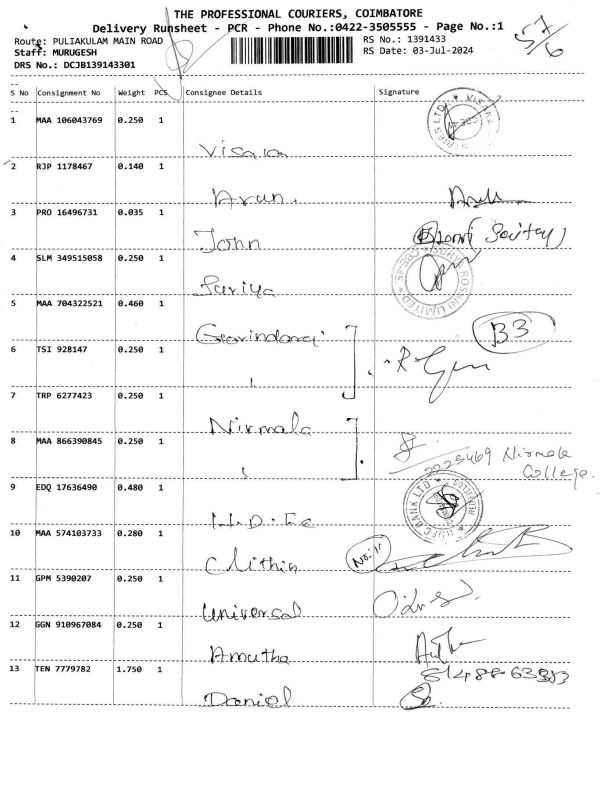 THE PROFESSIONAL COURIERS, COIMBATORE
Delivery Runsheet - PCR - Phone No.:0422-3505555 - Page No.:1
57/6
Route: PULIAKULAM MAIN ROAD RS No.: 1391433
Staff: MURUGESH RS Date: 03-Jul-2024
DRS No.: DCJB139143301
S No Consignment No Weight PCS Consignee Details Signature
1 MAA 106043769 0.250 1
Visala
2 RJP 1178467 0.140 1
Arun
3 PRO 16496731 0.035 1
John
4 SLM 349515058 0.250 1
Suriya
5 MAA 704322521 0.460 1
Govindaraj
B3
6 TSI 928147 0.250 1
7 TRP 6277423 0.250 1
Nirmala
8 MAA 866390845 0.250 1
2225469 Nirmala
College.
9 EDQ 17636490 0.480 1
H.D.F.C
BANK LTD
10 MAA 574103733 0.280 1
No: 11
Clithin
11 GPM 5390207 0.250 1
Universal
12 GGN 910967084 0.250 1
Amutha
13 TEN 7779782 1.750 1
Daniel